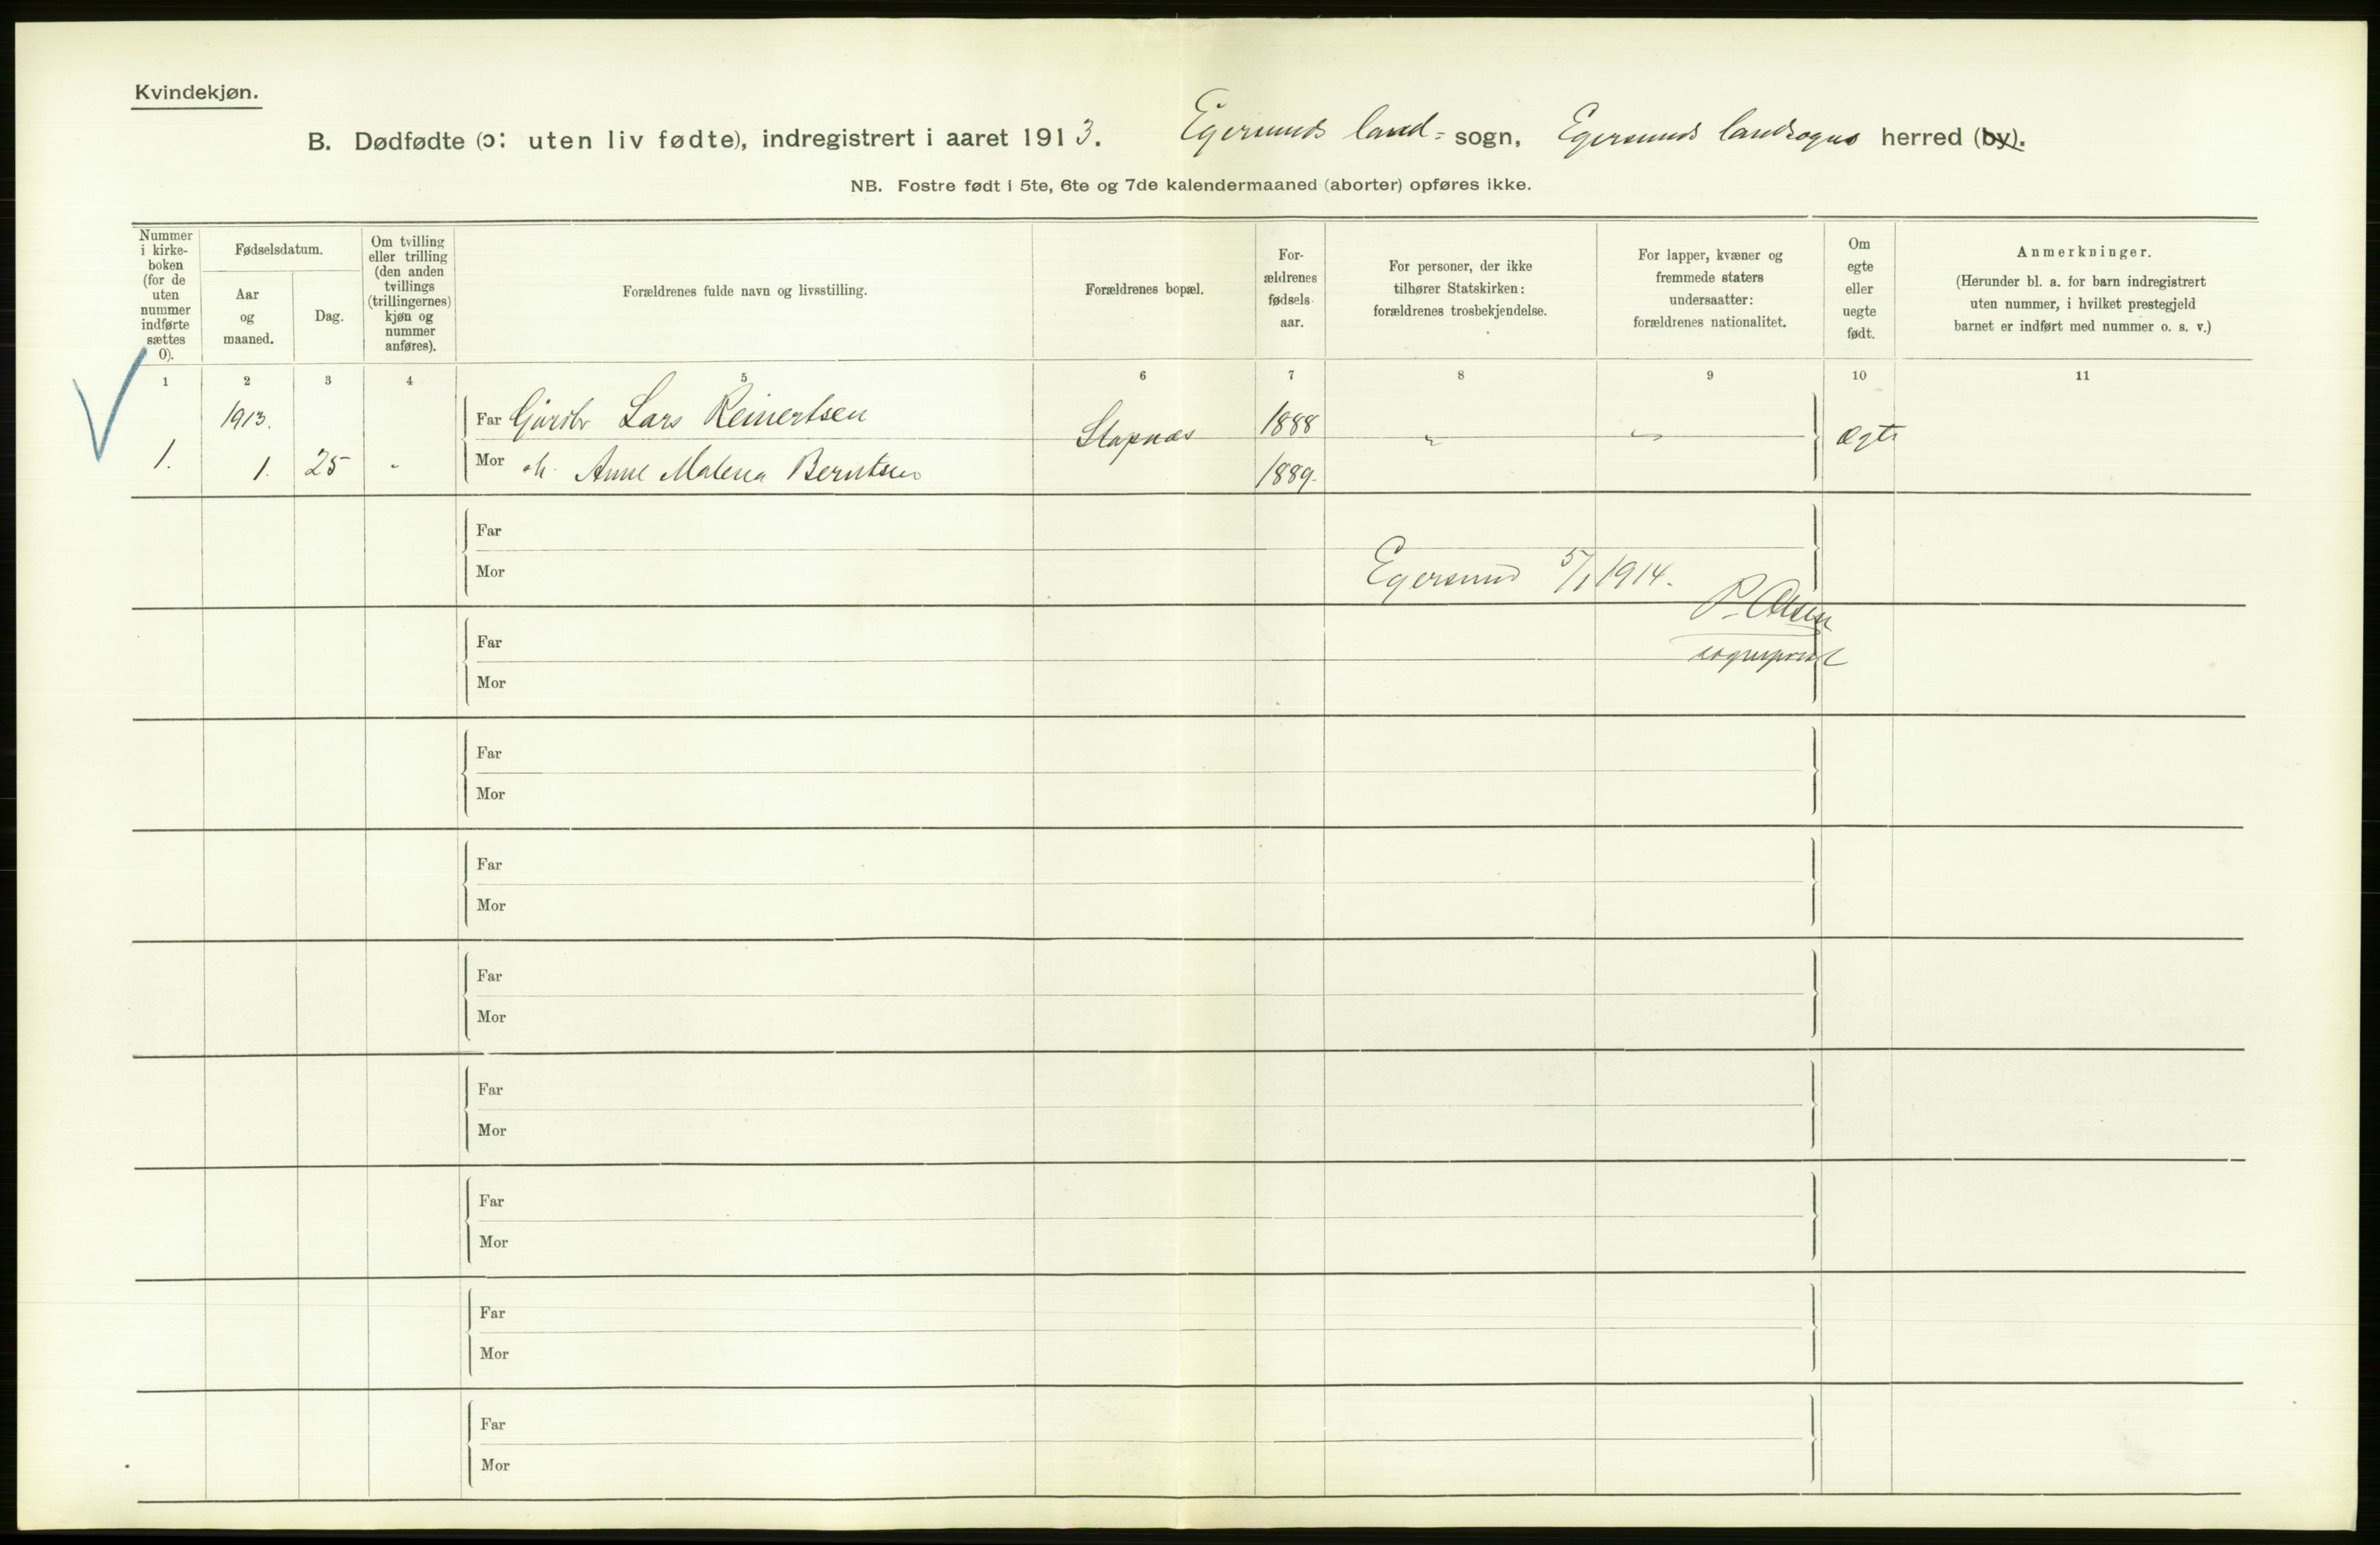 Kvindekjøn.
B. Dødfødte (ɔ: uten liv fødte), indregistrert i aaret 1913. Egersunds land- sogn, Egersunds landsogns herred (by).
NB. Fostre født i 5te, 6te og 7de kalendermaaned (aborter) opføres ikke.
Nummer
i kirke-
boken
(for de
uten
nummer
indførte
sættes
0).
Fødselsdatum.
Aar
og
maaned.
Dag.
Om tvilling
eller trilling
(den anden
tvillings
(trillingernes)
kjøn og
nummer
anføres).
Forældrenes fulde navn og livsstilling.
Forældrenes bopæl.
For-
ældrenes
fødsels-
aar.
For personer, der ikke
tilhører Statskirken:
forældrenes trosbekjendelse.
For lapper, kvæner og
fremmede staters
undersaatter:
forældrenes nationalitet.
Om
egte
eller
uegte
født.
Anmerkninger.
(Herunder bl. a. for barn indregistrert
uten nummer, i hvilket prestegjeld
barnet er indført med nummer o. s. v.)
1 2 3 4 5 6 7 8 9 10 11
1913.
Far Gårdbr Lars Reinertsen 1888
1. 1. 25 " Stapnæs " " Ægte
Mor Anne Malena Berntsen 1889.
Far
Mor
Egersund 5/1 1914.
P. Olsen
sogneprest
Far
Mor
Far
Mor
Far
Mor
Far
Mor
Far
Mor
Far
Mor
Far
Mor
Far
Mor